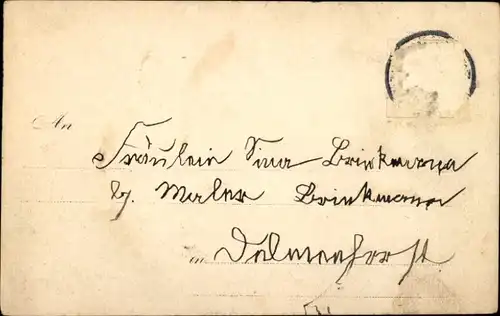 An
Fräulein Sina Brinkmann
bj. Maler Brinkmann
in Dalmerhorst